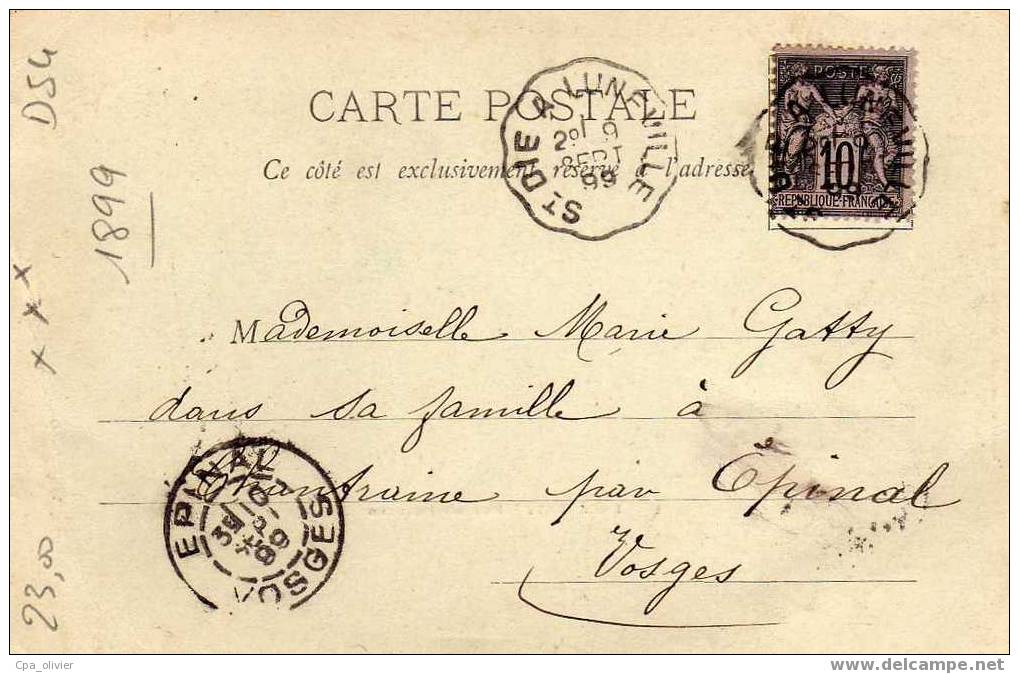 CARTE POSTALE
Ce côté est exclusivement réservé à l'adresse
ST DIE A LUNEVILLE
2º
9
SEPT
99
POSTE
10
REPUBLIQUE FRANÇAISE
D54
1899
x x x
23,00
Mademoiselle Marie Gatty
dans sa famille à
Chantraine par Épinal
Vosges
EPINAL
VOSGES
Cpa_olivier
www.delcampe.net